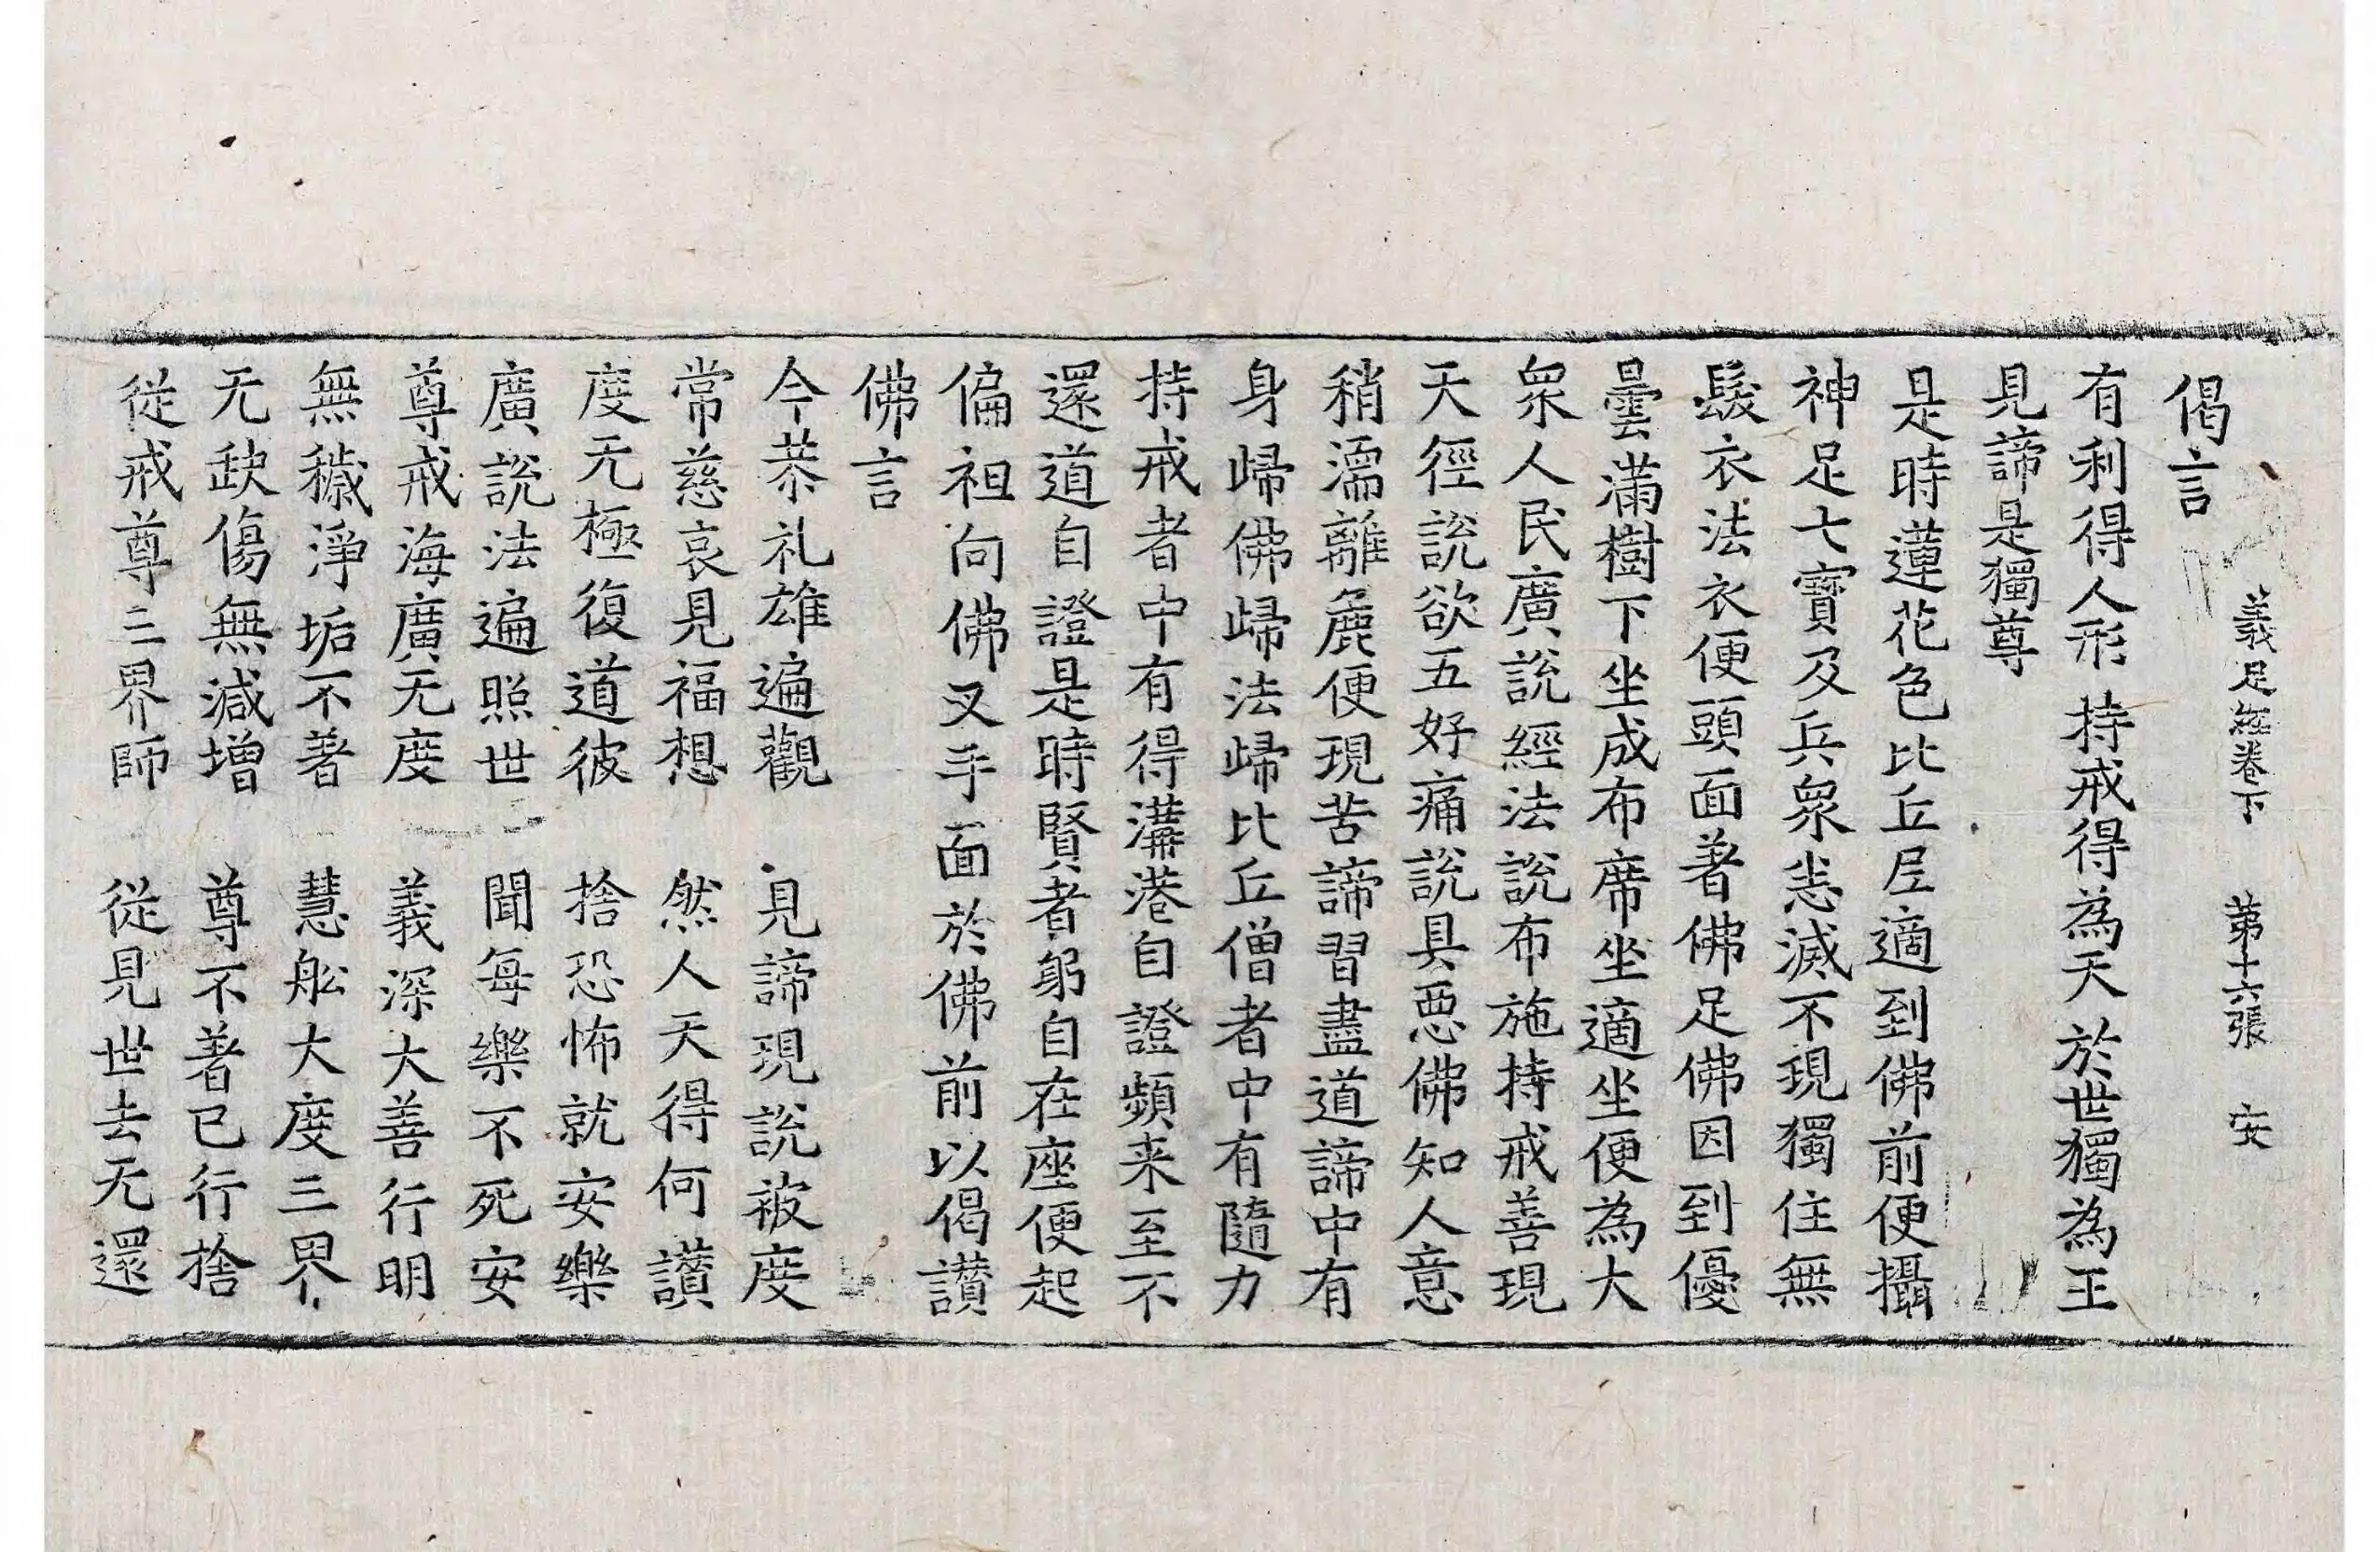 偈言
義足經卷下　第十六張　安
有利得人形　持戒得為天　於世獨為王
見諦是獨尊
是時蓮花色比丘尼適到佛前便攝
神足七寶及兵衆恙滅不現獨住無
髮衣法衣便頭面著佛足佛因到優
曇滿樹下坐成布席坐適坐便為大
衆人民廣說經法說布施持戒善現
天徑說欲五好痛說具惡佛知人意
稍濡離麁便現苦諦習盡道諦中有
身歸佛歸法歸比丘僧者中有隨力
持戒者中有得溝港自證頻来至不
還道自證是時賢者躬自在座便起
偏袒向佛叉手面於佛前以偈讃
佛言
今恭礼雄遍觀　見諦現說被度
常慈哀見福想　然人天得何讃
度无極復道彼　捨恐怖就安樂
廣說法遍照世　聞每樂不死安
尊戒海廣无度　義深大善行明
無穢淨垢不著　慧舩大度三界
无缺傷無減增　尊不著已行捨
從戒尊三界師　從見世去无還